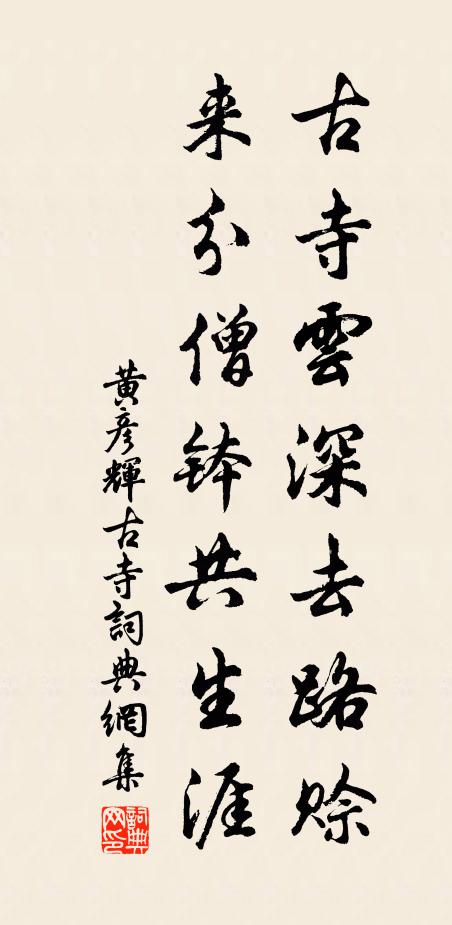 古寺雲深去路賒
来分僧鉢共生涯
黃彦輝古寺詞典網集
詞典
网印